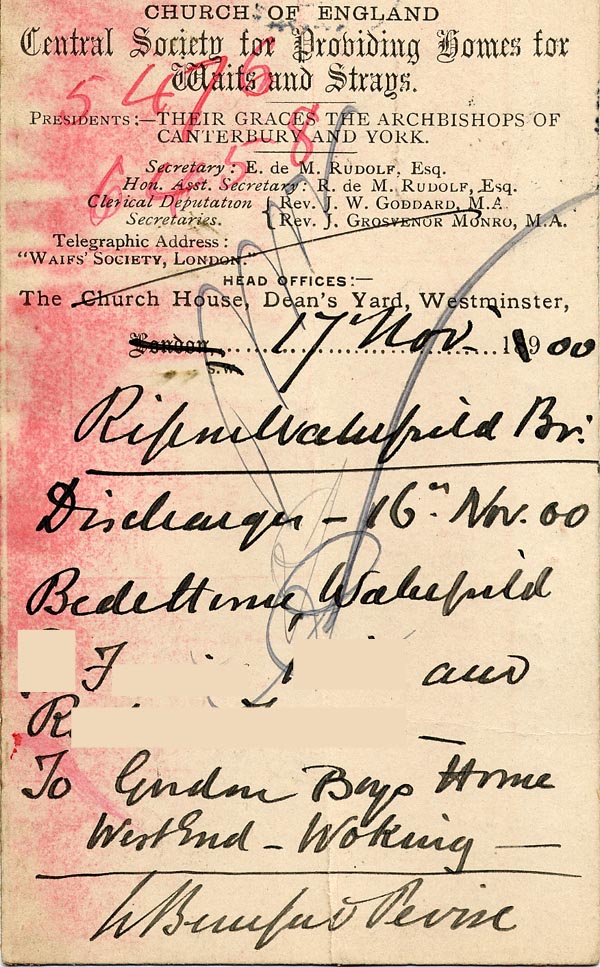 CHURCH OF ENGLAND
Central Society for Providing Homes for
Waifs and Strays.
5476
6458
PRESIDENTS:—THEIR GRACES THE ARCHBISHOPS OF
CANTERBURY AND YORK.
Secretary: E. de M. RUDOLF, Esq.
Hon. Asst. Secretary: R. de M. RUDOLF, Esq.
Clerical Deputation { Rev. J. W. GODDARD, M.A.
Secretaries. { Rev. J. GROSVENOR MONRO, M.A.
Telegraphic Address:
"WAIFS' SOCIETY, LONDON."
HEAD OFFICES:—
The Church House, Dean's Yard, Westminster,
London, S.W. 17 Nov. 1900
Ripon Wakefield Br:
Discharges - 16th Nov. 00
Bede Home, Wakefield
F and
R
To Gordon Boys Home
West End - Woking —